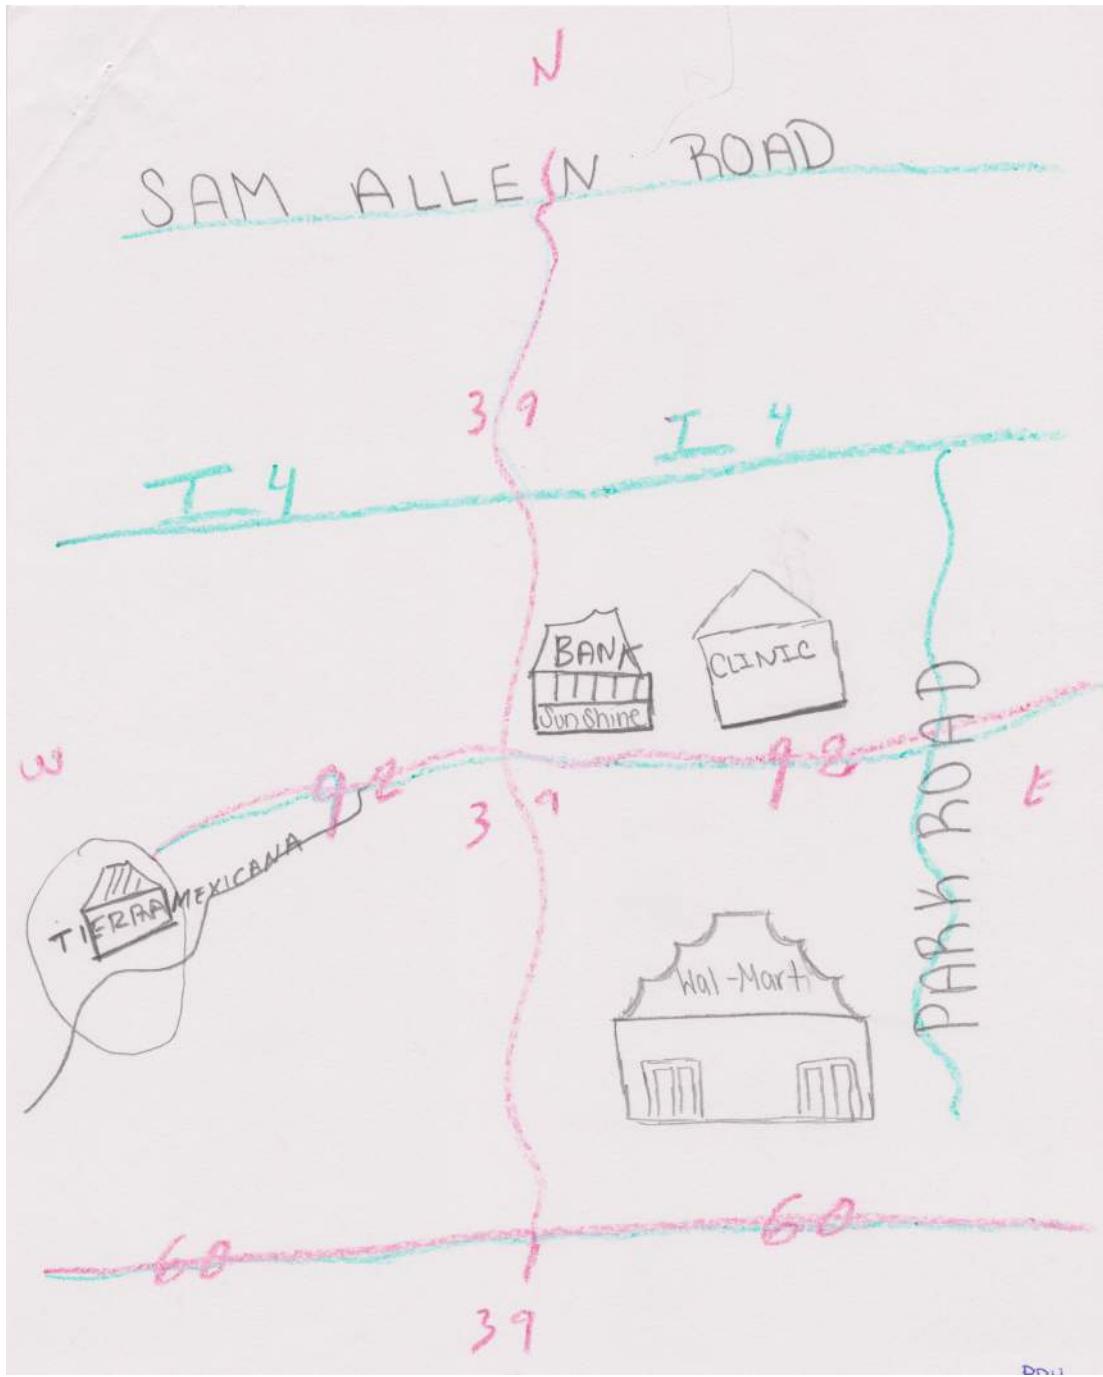 N
SAM ALLEN ROAD
3 9
I 4
I 4
BANK
Sunshine
CLINIC
W
92
92
E
3 9
TIERRA MEXICANA
PARK ROAD
Wal-Mart
60
60
39